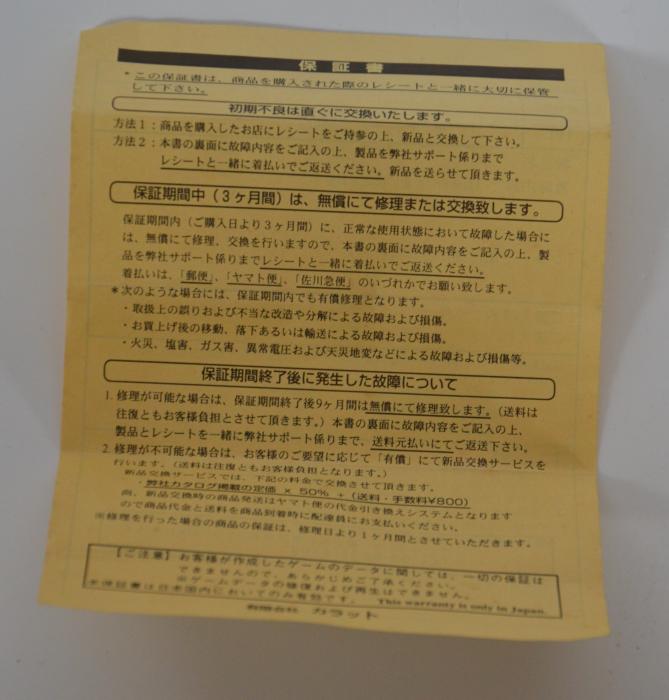 保証書
* この保証書は、商品を購入された際のレシートと一緒に大切に保管
して下さい。
初期不良は直ぐに交換いたします。
方法1：商品を購入したお店にレシートをご持参の上、新品と交換して下さい。
方法2：本書の裏面に故障内容をご記入の上、製品を弊社サポート係りまで
レシートと一緒に着払いでご返送ください。新品を送らせて頂きます。
保証期間中（3ヶ月間）は、無償にて修理または交換致します。
保証期間内（ご購入日より3ヶ月間）に、正常な使用状態において故障した場合に
は、無償にて修理、交換を行いますので、本書の裏面に故障内容をご記入の上、製
品を弊社サポート係りまでレシートと一緒に着払いでご返送ください。
着払いは、「郵便」、「ヤマト便」、「佐川急便」のいづれかでお願い致します。
＊次のような場合には、保証期間内でも有償修理となります。
・取扱上の誤りおよび不当な改造や分解による故障および損傷。
・お買上げ後の移動、落下あるいは輸送による故障および損傷。
・火災、塩害、ガス害、異常電圧および天災地変などによる故障および損傷等。
保証期間終了後に発生した故障について
1. 修理が可能な場合は、保証期間終了後9ヶ月間は無償にて修理致します。（送料は
往復ともお客様負担とさせて頂きます。）本書の裏面に故障内容をご記入の上、
製品とレシートを一緒に弊社サポート係りまで、送料元払いにてご返送下さい。
2. 修理が不可能な場合は、お客様のご要望に応じて「有償」にて新品交換サービスを
行います。（送料は往復ともお客様負担となります。）
新品交換サービスでは、下記の料金で交換させて頂きます。
・弊社カタログ掲載の定価 × 50% ＋（送料・手数料¥800）
尚、新品交換時の商品発送はヤマト便の代金引き換えシステムとなります
ので商品代金と送料を商品到着時に配達員にお支払いください。
※修理を行った場合の商品の保証は、修理日より1ヶ月間とさせていただきます。
【ご注意】お客様が作成したゲームのデータに関しては、一切の保証は
できませんので、あらかじめご了承ください。
※ゲームデータの修復および再生はできません。
本保証書は日本国内においてのみ有効です。 This warranty is only in Japan.
有限会社 カラット